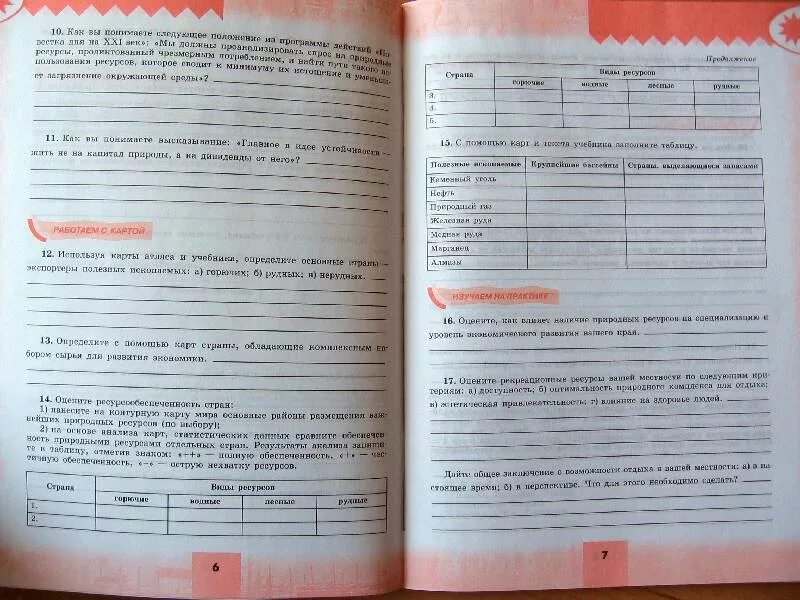 10. Как вы понимаете следующее положение из программы действий «По-
вестка дня на XXI век»: «Мы должны проанализировать спрос на природные
ресурсы, продиктованный чрезмерным потреблением, и найти пути такого ис-
пользования ресурсов, которое сводит к минимуму их истощение и уменьша-
ет загрязнение окружающей среды»?
11. Как вы понимаете высказывание: «Главное в идее устойчивости —
жить не на капитал природы, а на дивиденды от него»?
РАБОТАЕМ С КАРТОЙ
12. Используя карты атласа и учебника, определите основные страны —
экспортеры полезных ископаемых: а) горючих; б) рудных; в) нерудных.
13. Определите с помощью карт страны, обладающие комплексным на-
бором сырья для развития экономики.
14. Оцените ресурсообеспеченность стран:
1) нанесите на контурную карту мира основные районы размещения важ-
нейших природных ресурсов (по выбору);
2) на основе анализа карт, статистических данных сравните обеспечен-
ность природными ресурсами отдельных стран. Результаты анализа запиши-
те в таблицу, отметив знаком: «++» — полную обеспеченность, «+» — час-
тичную обеспеченность, «−» — острую нехватку ресурсов.
Страна Виды ресурсов
горючие водные лесные рудные
1.
2.
6
Продолжение
Страна Виды ресурсов
горючие водные лесные рудные
3.
4.
5.
15. С помощью карт и текста учебника заполните таблицу.
Полезные ископаемые Крупнейшие бассейны Страны, выделяющиеся запасами
Каменный уголь
Нефть
Природный газ
Железная руда
Медная руда
Марганец
Алмазы
ИЗУЧАЕМ НА ПРАКТИКЕ
16. Оцените, как влияет наличие природных ресурсов на специализацию и
уровень экономического развития вашего края.
17. Оцените рекреационные ресурсы вашей местности по следующим кри-
териям: а) доступность; б) оптимальность природного комплекса для отдыха;
в) эстетическая привлекательность; г) влияние на здоровье людей.
Дайте общее заключение о возможности отдыха в вашей местности: а) в на-
стоящее время; б) в перспективе. Что для этого необходимо сделать?
7